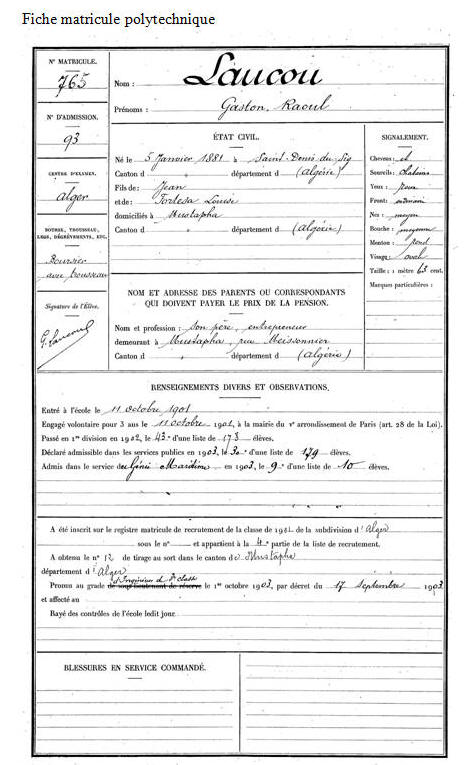 Fiche matricule polytechnique
N° MATRICULE.
765
N° D'ADMISSION.
93
CENTRE D'EXAMEN.
Alger
BOURSE, TROUSSEAU,
LEGS, DÉGRÈVEMENTS, ETC.
Boursier
avec trousseau
Signature de l'Élève.
G. Laucou
Nom : Laucou
Prénoms : Gaston, Raoul
ÉTAT CIVIL.
Né le 5 Janvier 1881 à Saint-Denis du Sig
Canton d département d (Algérie)
Fils de : Jean
et de : Tortesa Louise
domiciliés à Mustapha
Canton d département d (Algérie)
SIGNALEMENT.
Cheveux : et
Sourcils : chatains
Yeux :
Front :
Nez : moyen
Bouche : moyenne
Menton : rond
Visage : oval
Taille : 1 mètre 63 cent.
Marques particulières :
NOM ET ADRESSE DES PARENTS OU CORRESPONDANTS
QUI DOIVENT PAYER LE PRIX DE LA PENSION.
Nom et profession : son père, entrepreneur
demeurant à Mustapha, rue Meissonnier
Canton d département d (Algérie)
RENSEIGNEMENTS DIVERS ET OBSERVATIONS.
Entré à l'école le 11 octobre 1901
Engagé volontaire pour 3 ans le 11 octobre 1901, à la mairie du Ve arrondissement de Paris (art. 28 de la Loi).
Passé en 1re division en 1902, le 43e d'une liste de 173 élèves.
Déclaré admissible dans les services publics en 1903, le 30e d'une liste de 179 élèves.
Admis dans le service du Génie Maritime en 1903, le 9e d'une liste de 10 élèves.
A été inscrit sur le registre matricule de recrutement de la classe de 1901 de la subdivision d'Alger
sous le n° et appartient à la 4e partie de la liste de recrutement.
A obtenu le n° 12 de tirage au sort dans le canton de Mustapha
département d'Alger
d'Ingénieur de 3e classe
Promu au grade de sous-lieutenant de réserve le 1er octobre 1903, par décret du 17 Septembre 1903
et affecté au
Rayé des contrôles de l'école ledit jour.
BLESSURES EN SERVICE COMMANDÉ.